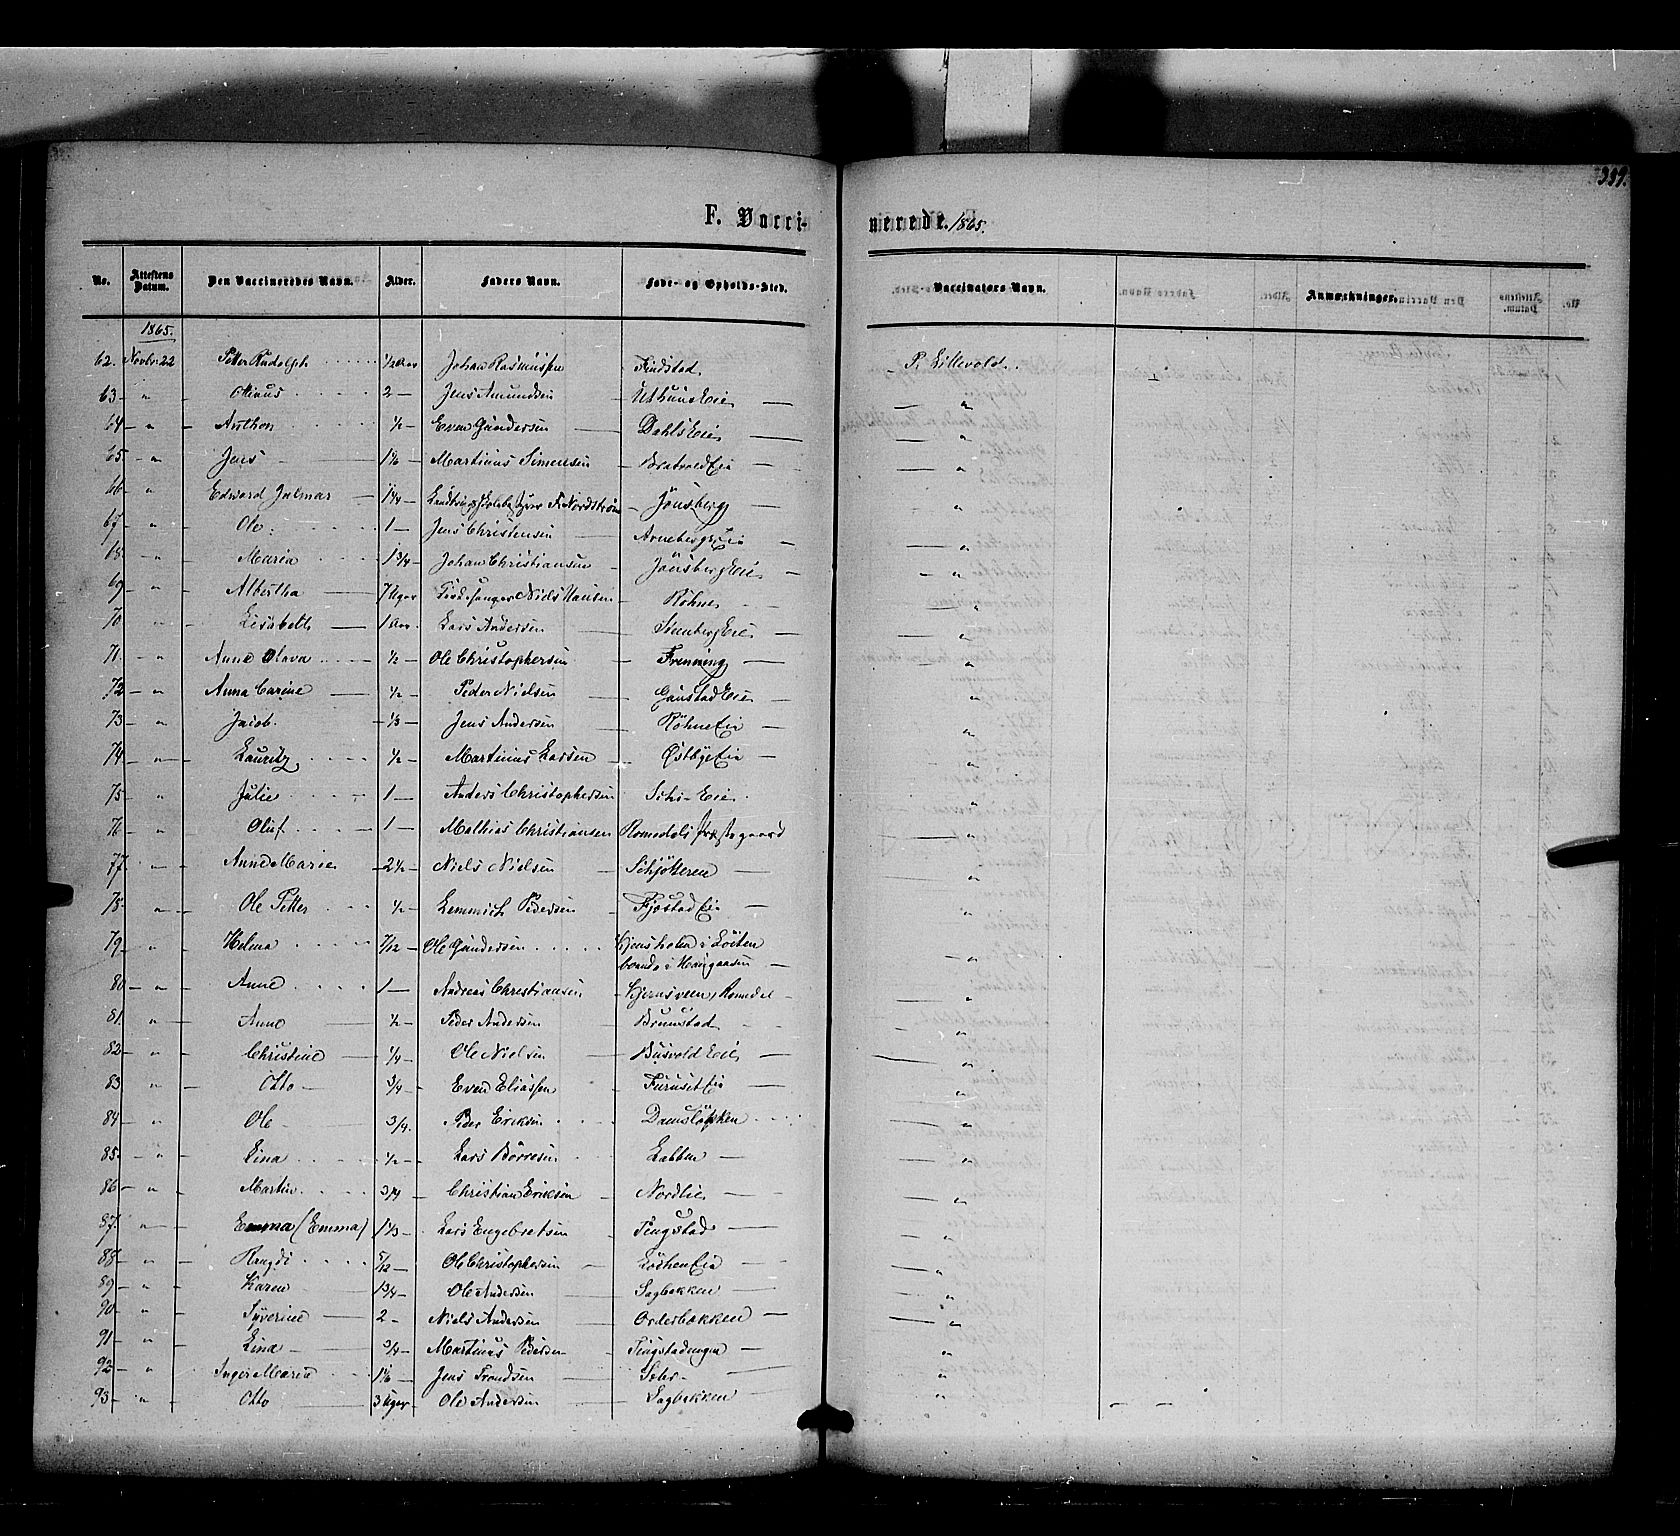 359.
F. Vacci-nerede. 1865.
No. Attestens Datum. Den Vaccineredes Navn. Alder. Faders Navn. Føde- og Opholds-Sted. Vaccinators Navn. Anmærkninger.
1865.
62. Novbr. 22 Petter Rudolph 1/2 Aar Johan Rasmussen Findstad P. Lillevold.
63 " Olinus 2 Jens Amundsen Uthuus Eie "
64 " Anthon 1/2 Even Gundersen Dahls Eie "
65 " Jens 1 1/6 Martinus Simensen "
66 " Edward Jalmar 1 1/4 F. Nordstrøm Jönsberg "
67 " Ole 1 Jens Christensen Arneberg Eie "
68 " Maria 1 3/4 Johan Christiansen Jönsberg Eie "
69 " Albertha 7 Uger Niels Hansen Röhne "
70 " Lisabeth 1 Aar Lars Andersen Sønsberg Eie "
71. " Anne Olava 1/2 Ole Christophersen Frenning "
72 " Anna Carine 1/2 Peder Nielsen Gaustad Eie "
73 " Jacob. 1/3 Jens Andersen Röhne Eie "
74 " Lauritz 1/2 Martinus Larsen Østbye Eie "
75 " Julie 1 Anders Christophersen Eie "
76 " Oluf 1 Mathias Christiansen Romedals Præstegaard "
77 " Anne Marie 2 1/2 Niels Nielsen Schjötteren "
78 " Ole Petter 1/2 Lemmich Pedersen Fjøstad Eie "
79 " Helena 7/12 Ole Gundersen i Löiten
boende i Haugaasen "
80 " Anne 1 Andreas Christiansen Romedal "
81. " Anne 1/2 Peder Andersen Brumstad "
82 " Christine 1/4 Ole Nielsen Busvold Eie "
83 " Otto 3/4 Even Eliassen Furuset Eie "
84 " Ole 3/4 Peder Eriksen Damslökken "
85. " Lina 1/2 Lars Börresen Labben "
86 " Martin 3/4 Christian Eriksen Nordlie "
87. " Emma (Emma) 1 1/3 Lars Engebretsen Tingstad "
88 " Rangdi 5/12 Ole Christophersen Eie "
89 " Karen 1 3/4 Ole Andersen Sagbakken "
90 " Syverine 2 Niels Andersen Orderbakken "
91 " Lina 3/4 Martinus Pedersen Tingstadengen "
92 " Inger Maria 1 1/6 Jens Trondsen "
93 " Otto 3 Uger Ole Andersen Sagbakken "